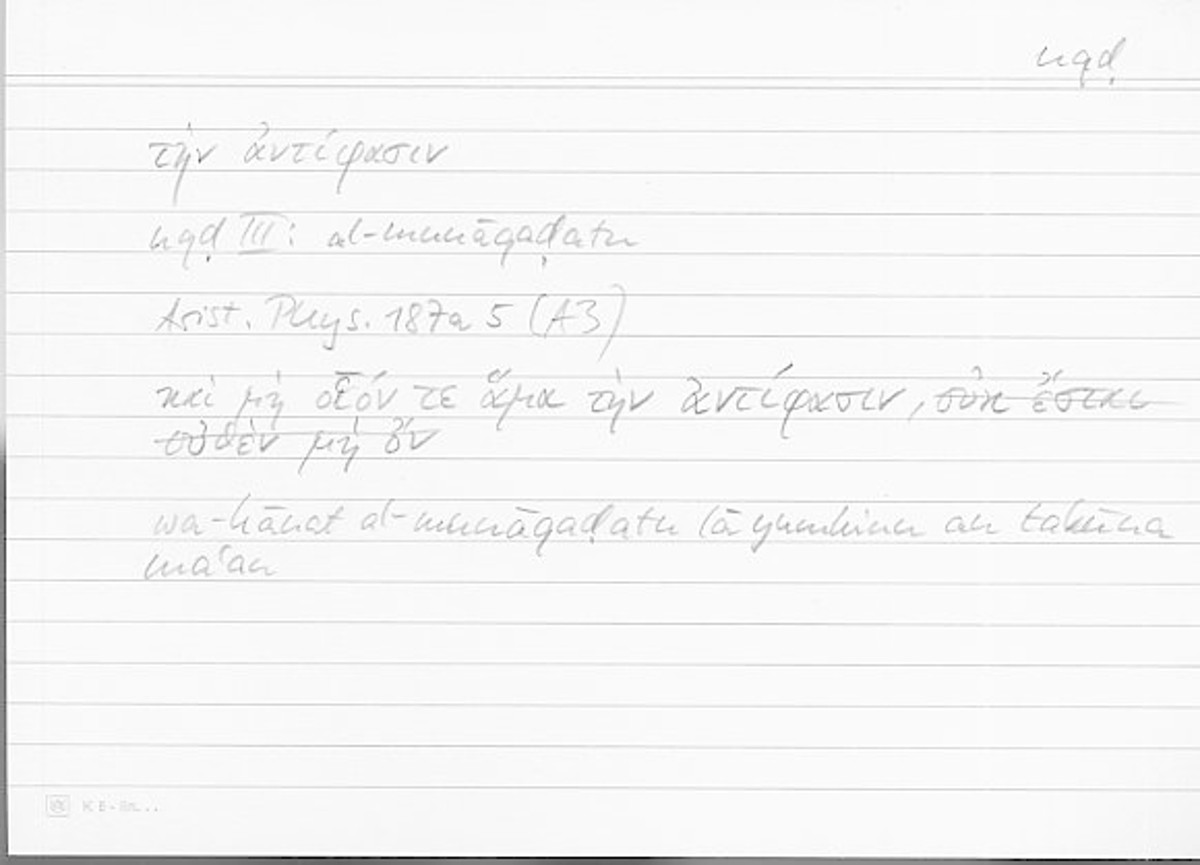 nqḍ
τὴν ἀντίφασιν
nqḍ III: al-munāqaḍatu
Arist. Phys. 187a 5 (A3)
καὶ μὴ οἷόν τε ἅμα τὴν ἀντίφασιν, οὐκ ἔσται
οὐθὲν μὴ ὄν
wa-kānat al-munāqaḍatu lā yumkinu an takūna
maʿan